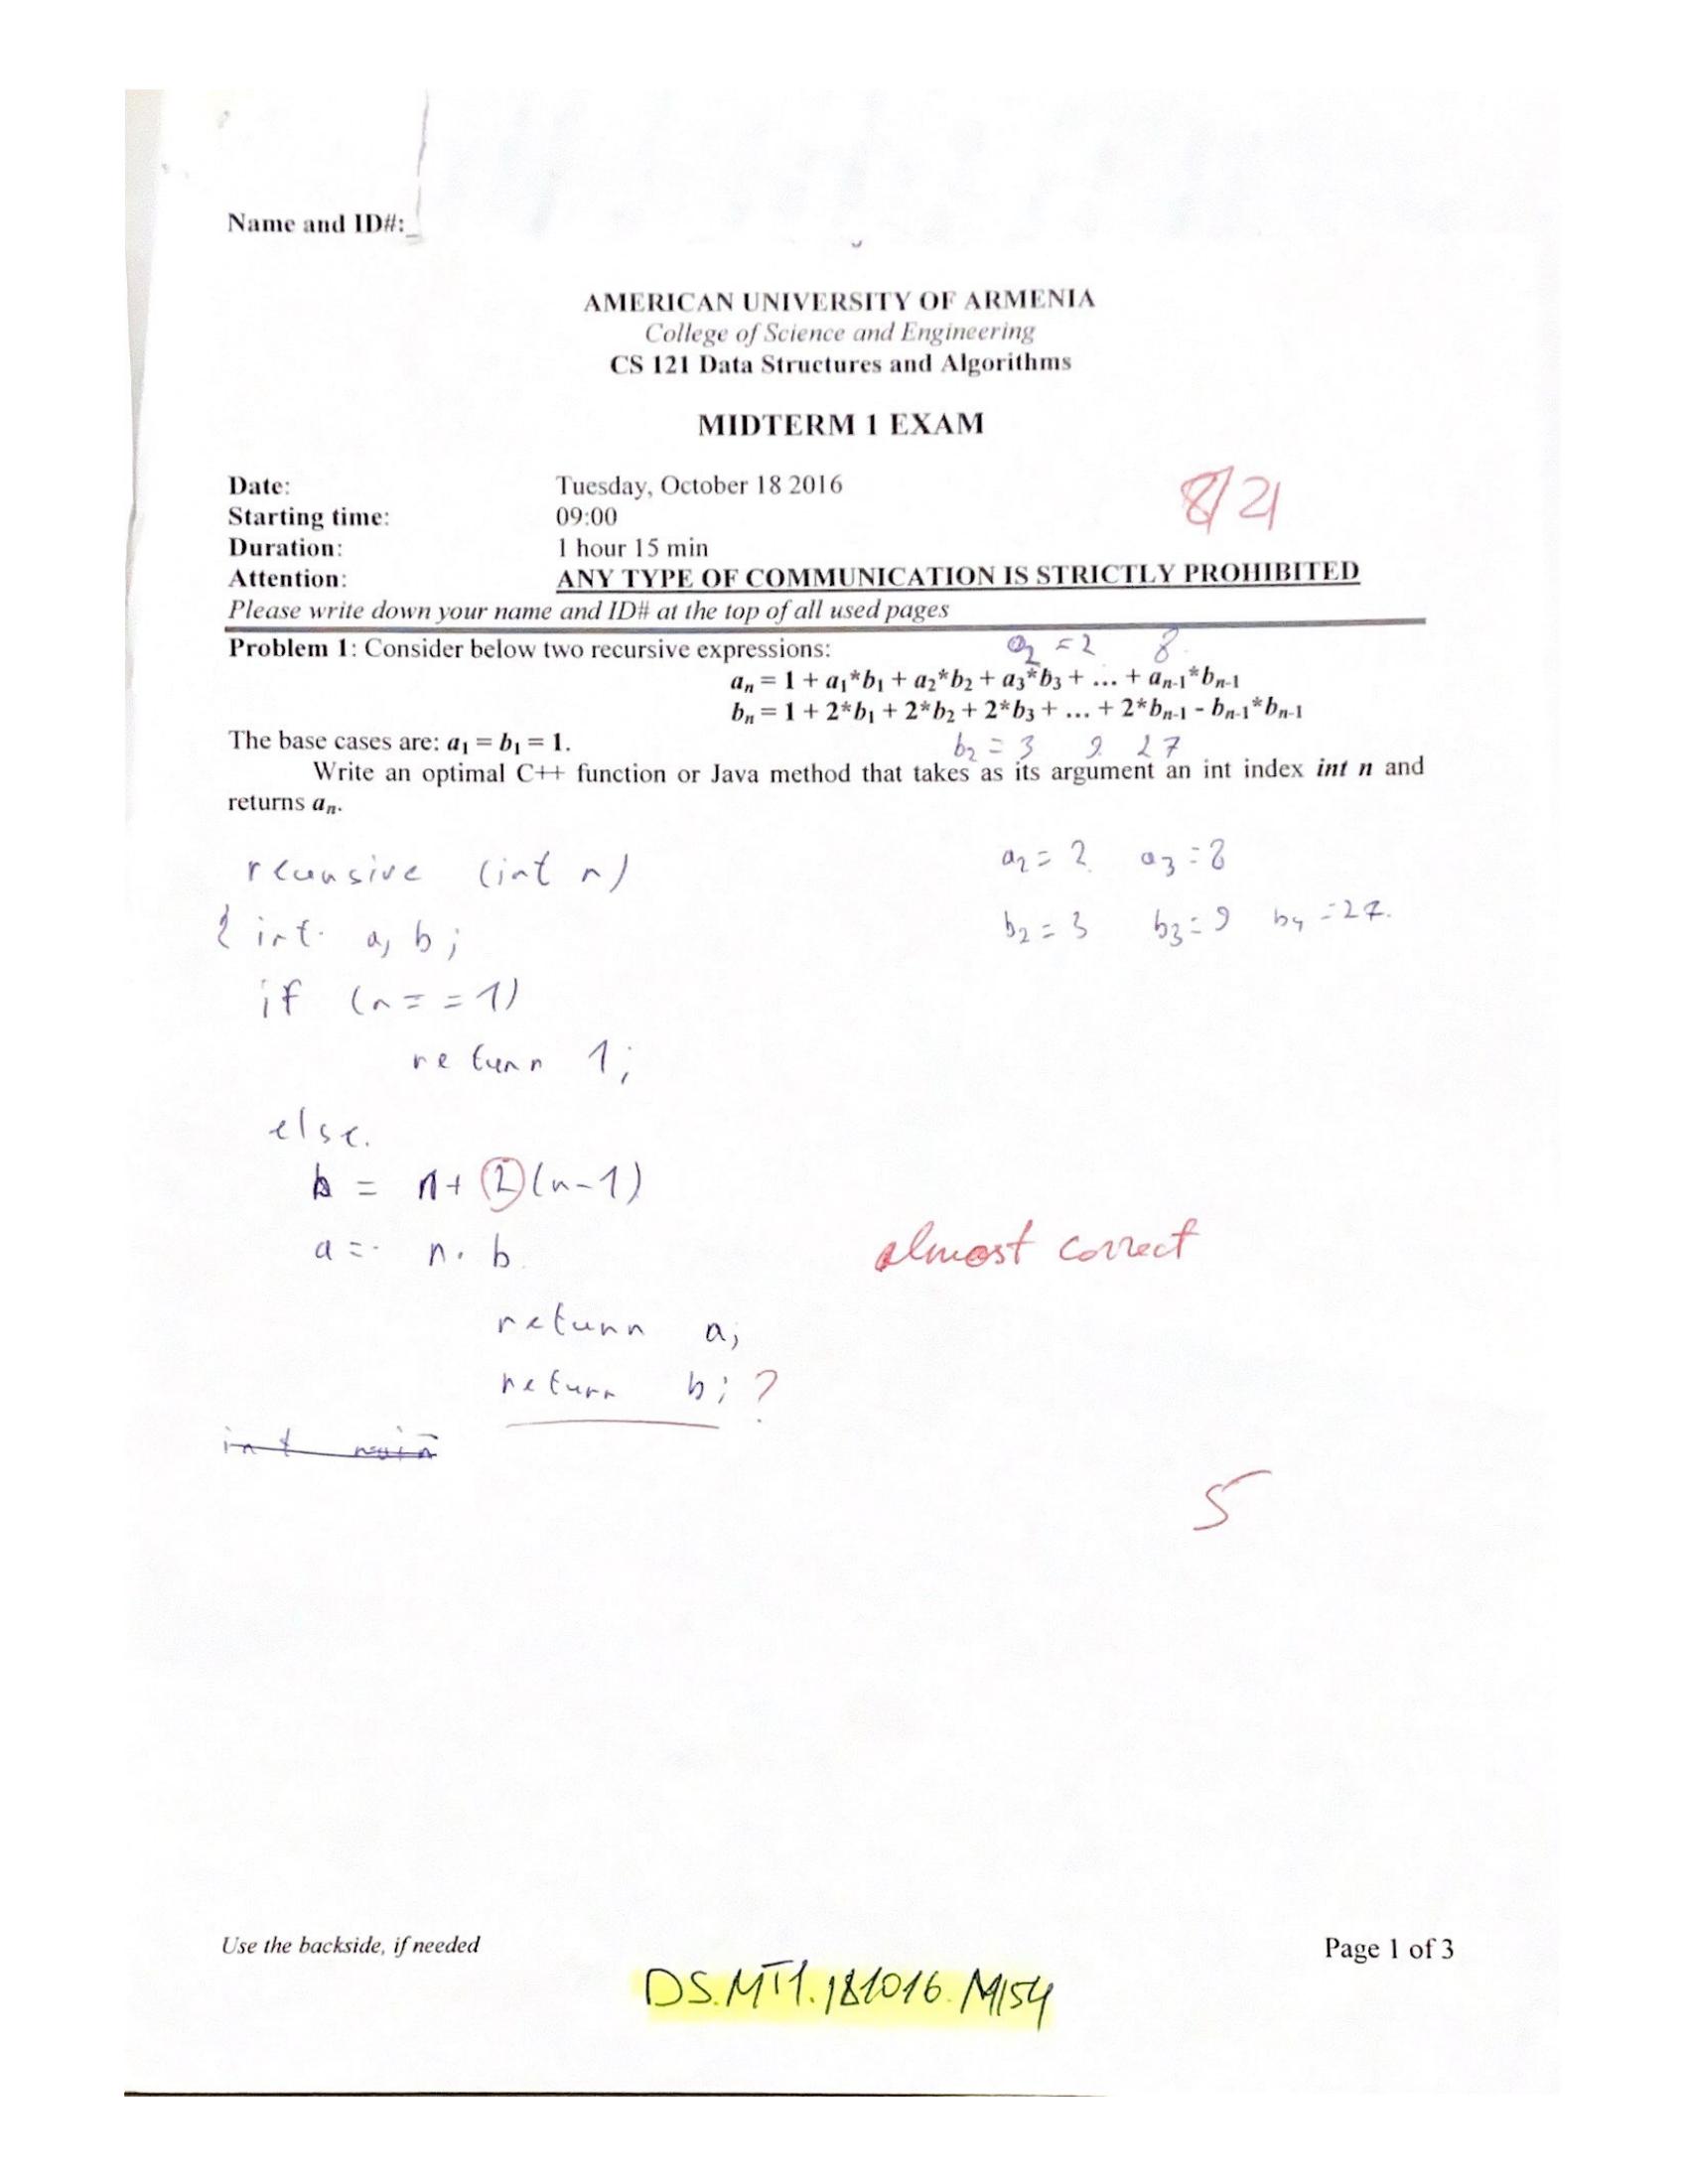 Name and ID#:_
AMERICAN UNIVERSITY OF ARMENIA
College of Science and Engineering
CS 121 Data Structures and Algorithms
MIDTERM 1 EXAM
Date: Tuesday, October 18 2016
8/21
Starting time: 09:00
Duration: 1 hour 15 min
Attention: ANY TYPE OF COMMUNICATION IS STRICTLY PROHIBITED
Please write down your name and ID# at the top of all used pages
Problem 1: Consider below two recursive expressions:
a₂ = 2 8
aₙ = 1 + a₁*b₁ + a₂*b₂ + a₃*b₃ + ... + aₙ₋₁*bₙ₋₁
bₙ = 1 + 2*b₁ + 2*b₂ + 2*b₃ + ... + 2*bₙ₋₁ - bₙ₋₁*bₙ₋₁
The base cases are: a₁ = b₁ = 1.
b₂ = 3 9 27
Write an optimal C++ function or Java method that takes as its argument an int index int n and
returns aₙ.
recursive (int n)
a₂ = 2 a₃ = 8
{ int a, b;
b₂ = 3 b₃ = 9 b₄ = 27.
if (n = = 1)
return 1;
else.
b = n + 2(n-1)
a = n . b
almost correct
return a;
return b; ?
int main
5
Use the backside, if needed
Page 1 of 3
DS.MT1.181016.M154